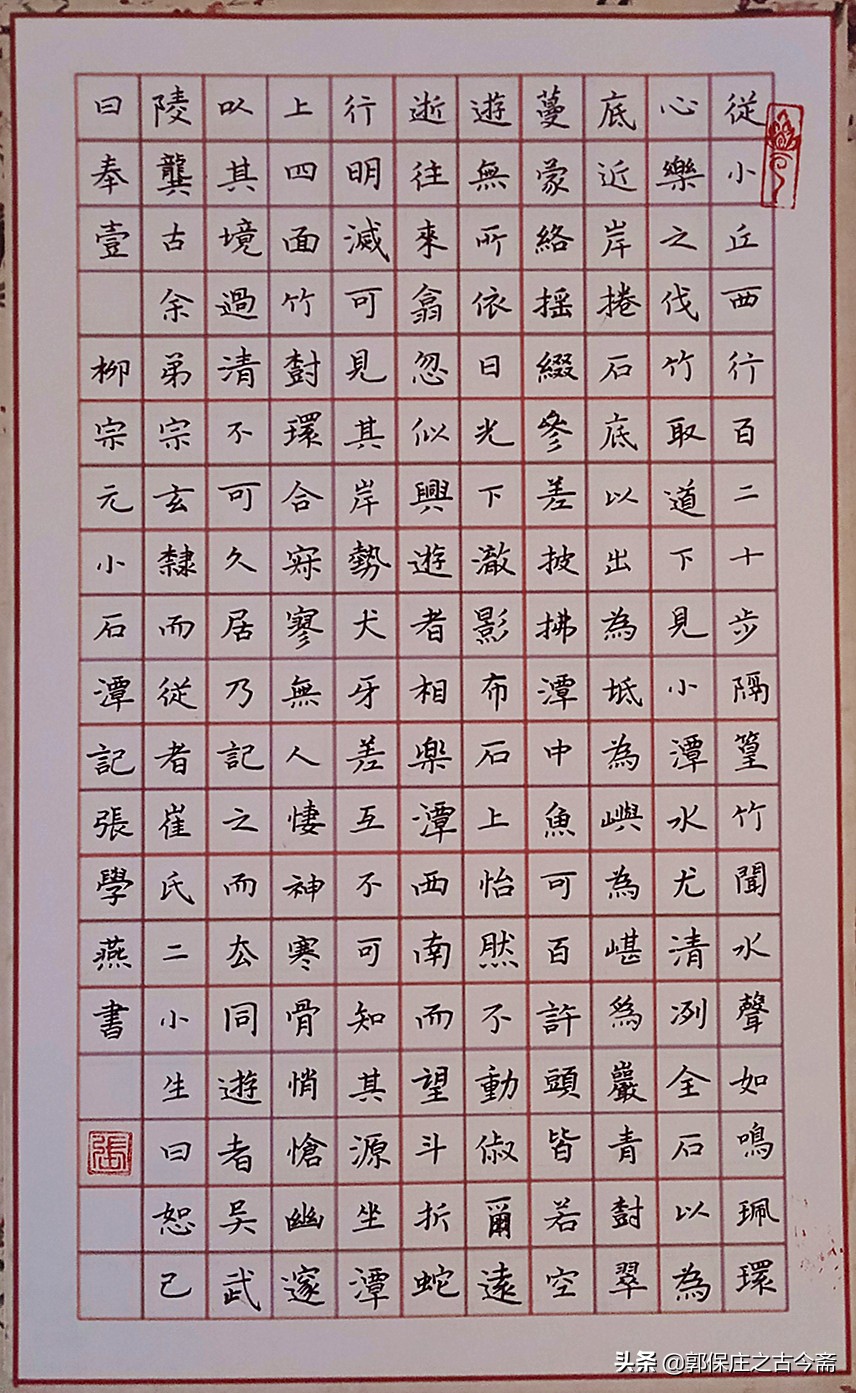 從小丘西行百二十步隔篁竹聞水聲如鳴珮環
心樂之伐竹取道下見小潭水尤清冽全石以為
底近岸捲石底以出為坻為嶼為嵁為巖青樹翠
蔓蒙絡揺綴參差披拂潭中魚可百許頭皆若空
遊無所依日光下澈影布石上怡然不動俶爾遠
逝往來翕忽似與遊者相樂潭西南而望斗折蛇
行明滅可見其岸勢犬牙差互不可知其源坐潭
上四面竹樹環合寂寥無人悽神寒骨悄愴幽邃
以其境過清不可久居乃記之而去同遊者吴武
陵龔古余弟宗玄隸而從者崔氏二小生曰恕己
曰奉壹 柳宗元小石潭記張學燕書
張
头条 @郭保庄之古今斋